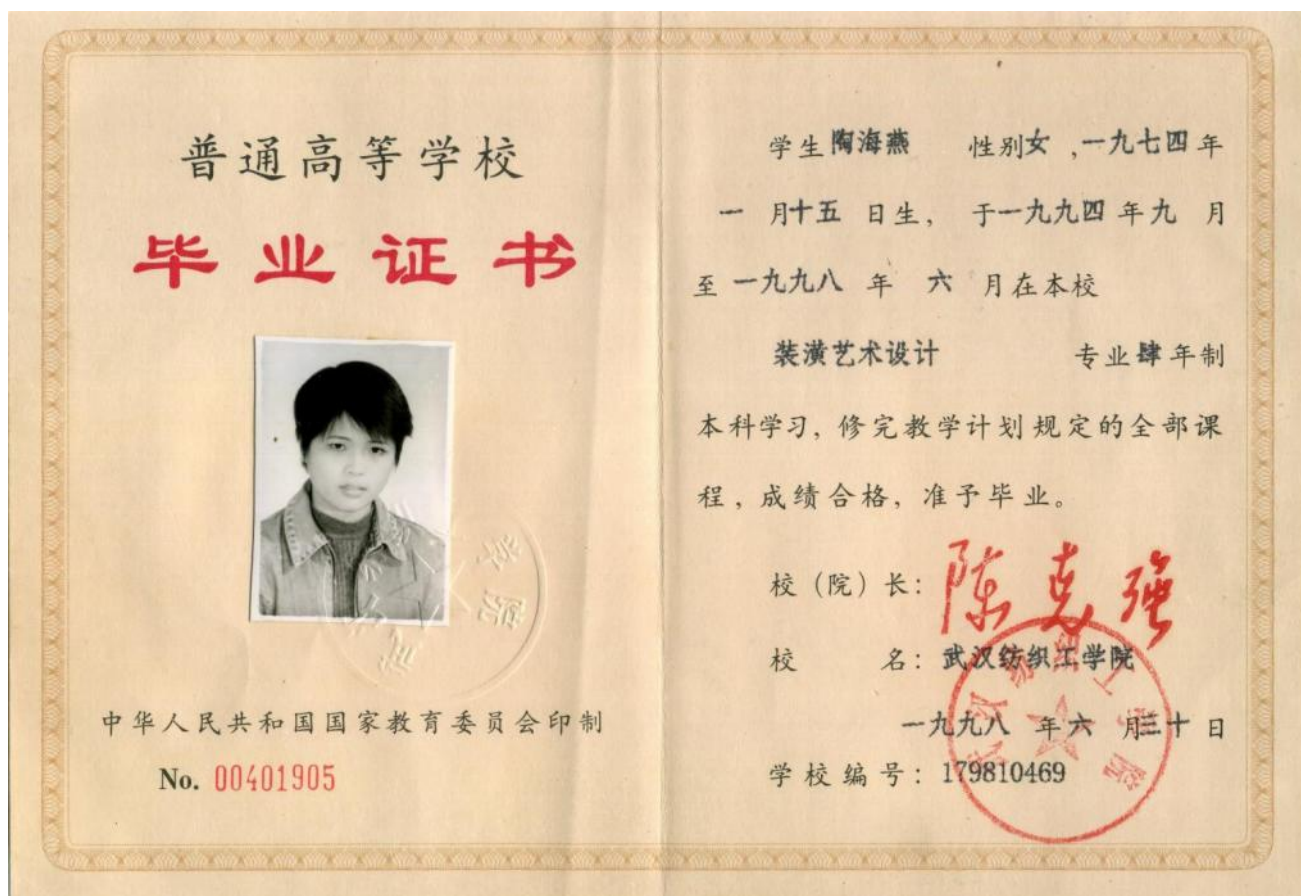 普通高等学校
毕业证书
中华人民共和国国家教育委员会印制
No. 00401905
学生陶海燕 性别女,一九七四年
一月十五日生, 于一九九四年九月
至一九九八年六月在本校
装潢艺术设计 专业肆年制
本科学习, 修完教学计划规定的全部课
程, 成绩合格, 准予毕业。
校(院)长: 陈克强
校 名: 武汉纺织工学院
武汉纺织工学院
一九九八年六月三十日
学校编号: 179810469